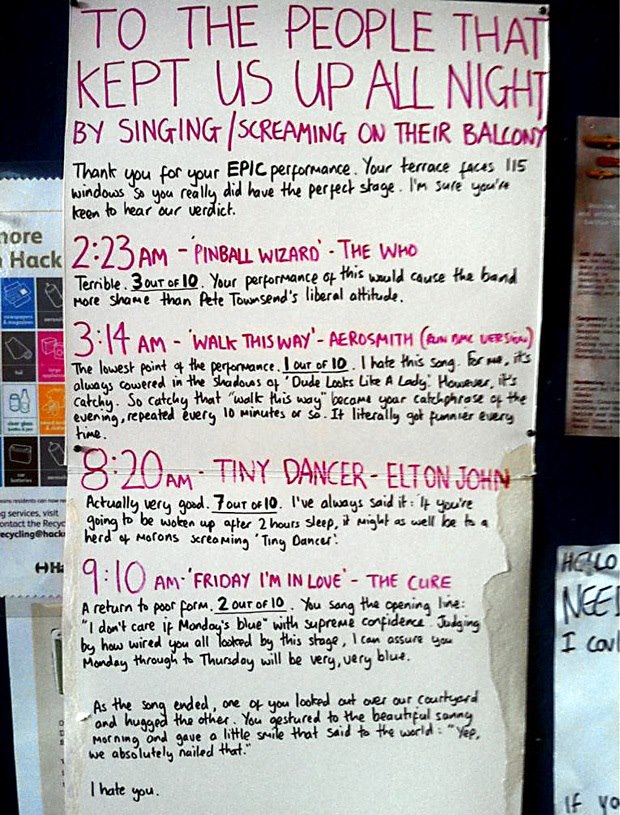 TO THE PEOPLE THAT
KEPT US UP ALL NIGHT
BY SINGING/SCREAMING ON THEIR BALCONY
Thank you for your EPIC performance. Your terrace faces 115
windows so you really did have the perfect stage. I'm sure you're
keen to hear our verdict.
2:23AM - 'PINBALL WIZARD' - THE WHO
Terrible. 3 OUT OF 10. Your performance of this would cause the band
more shame than Pete Townsend's liberal attitude.
3:14 AM - 'WALK THIS WAY' - AEROSMITH (RUN DMC VERSION)
The lowest point of the performance. 1 OUT OF 10. I hate this song. For me, it's
always cowered in the shadows of 'Dude Looks Like A Lady'. However, it's
catchy. So catchy that "walk this way" became your catchphrase of the
evening, repeated every 10 minutes or so. It literally got funnier every
time.
8:20AM - TINY DANCER - ELTON JOHN
Actually very good. 7 OUT OF 10. I've always said it: 'If you're
going to be woken up after 2 hours sleep, it might as well be to a
herd of morons screaming 'Tiny Dancer'.
9:10 AM - 'FRIDAY I'M IN LOVE' - THE CURE
A return to poor form. 2 OUT OF 10. You sang the opening line:
"I don't care if Monday's blue" with supreme confidence. Judging
by how wired you all looked by this stage, I can assure you
Monday through to Thursday will be very, very blue.
As the song ended, one of you looked out over our courtyard
and hugged the other. You gestured to the beautiful sunny
morning and gave a little smile that said to the world: "Yep,
we absolutely nailed that."
I hate you.
more
Hack
newspapers
& magazines
foil
clear glass
car
batteries
residents can now
services, visit
contact the Recyc
recycling@hack
HELLO
NEE
I COUL
IF YO